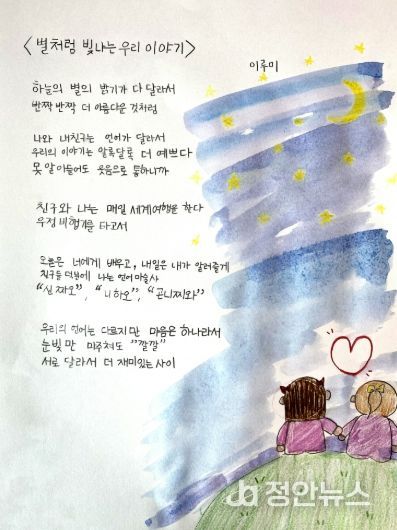 <별처럼 빛나는 우리 이야기>
이루미
하늘의 별의 밝기가 다 달라서
반짝 반짝 더 아름다운 것처럼
나와 내친구는 언어가 달라서
우리의 이야기는 알록달록 더 예쁘다
못 알아들어도 웃음으로 통하니까
친구와 나는 매일 세계여행을 한다
우정 비행기를 타고서
오늘은 너에게 배우고, 내일은 내가 알려줄게
친구들 덕분에 나는 언어마술사
"신짜오", "니하오", "곤니찌와"
우리의 언어는 다르지만 마음은 하나라서
눈빛만 마주쳐도 "깔깔"
서로 달라서 더 재미있는 사이
정안뉴스